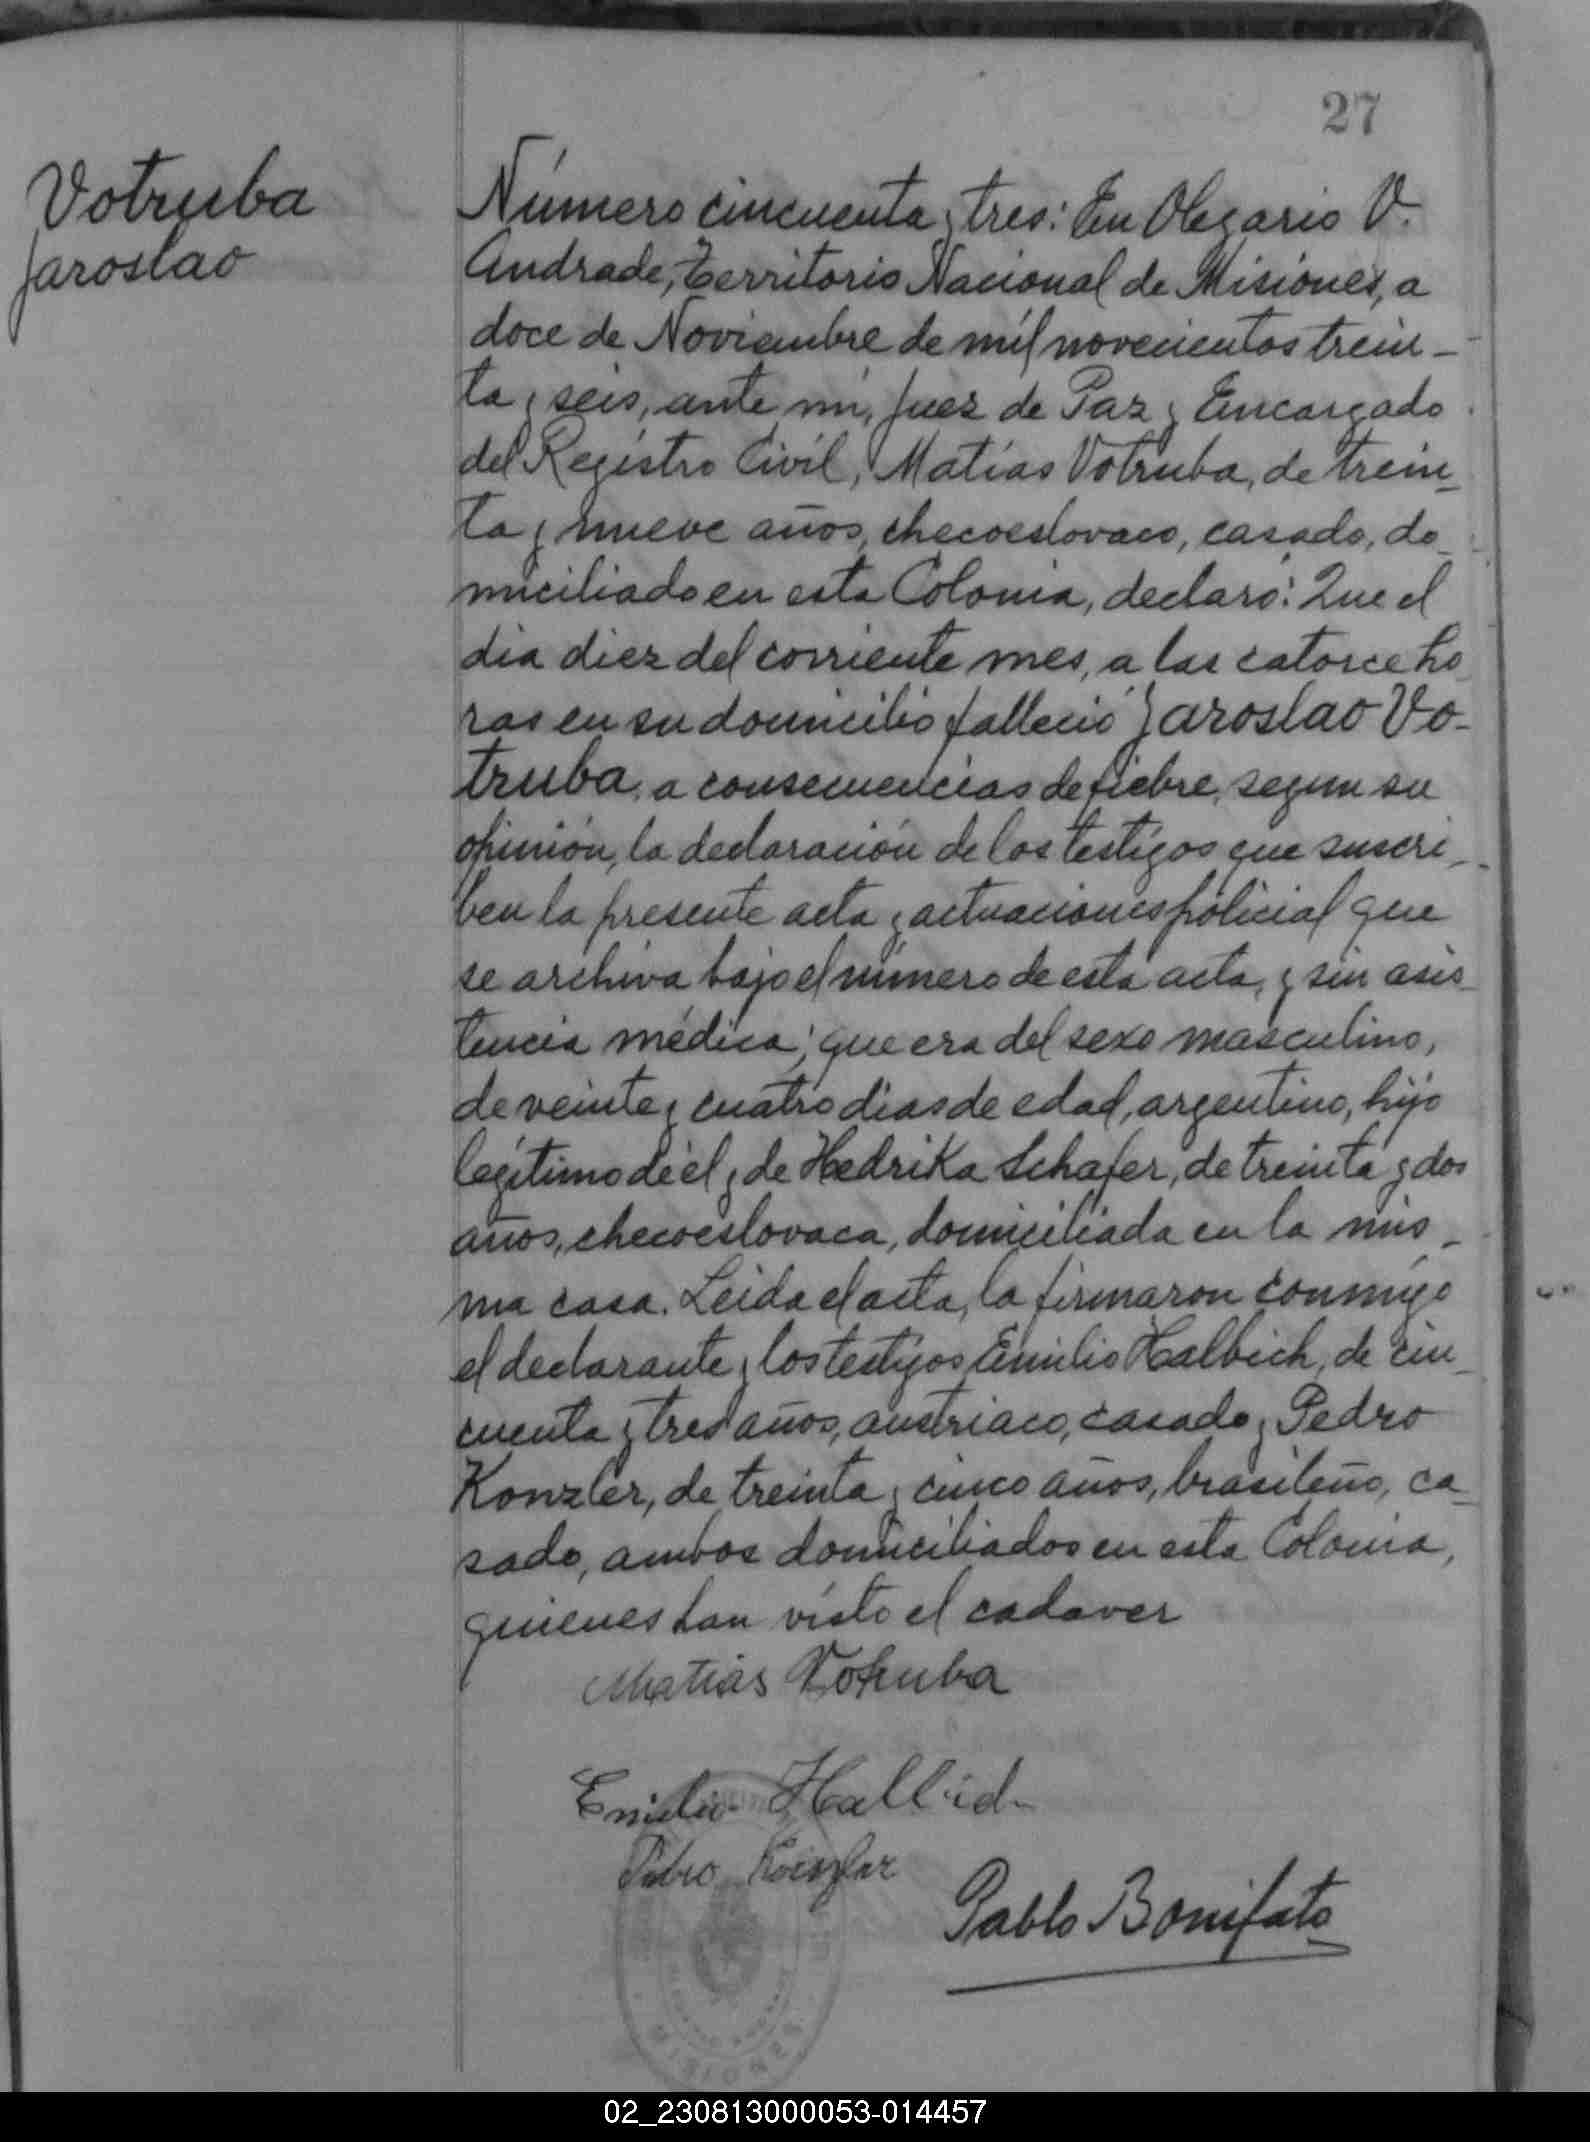 27
Votruba
Jaroslao
Número cincuenta y tres: En Olegario V.
Andrade, Territorio Nacional de Misiones, a
doce de Noviembre de mil novecientos trein-
ta y seis, ante mí, Juez de Paz y Encargado
del Registro Civil, Matías Votruba, de trein-
ta y nueve años, checoeslovaco, casado, do-
miciliado en esta Colonia, declaró: Que el
día diez del corriente mes, a las catorce ho
ras en su domicilio falleció Jaroslao Vo-
truba, a consecuencias de fiebre, segun su
opinión, la declaración de los testigos que suscri-
ben la presente acta y actuaciones policial que
se archiva bajo el número de esta acta, y sin asis-
tencia médica; que era del sexo masculino,
de veinte y cuatro dias de edad, argentino, hijo
legítimo de él y de Hedrika Schafer, de treinta y dos
años, checoeslovaca, domiciliada en la mis-
ma casa. Leida el acta, la firmaron conmigo
el declarante y los testigos Emilio Halbich, de cin-
cuenta y tres años, austriaco, casado y Pedro
Konzler, de treinta y cinco años, brasileño, ca-
sado, ambos domiciliados en esta Colonia,
quienes han visto el cadaver
Matias Votruba
Emilio Halbich
Pedro
Pablo Bonifato
MISIONES
02_230813000053-014457